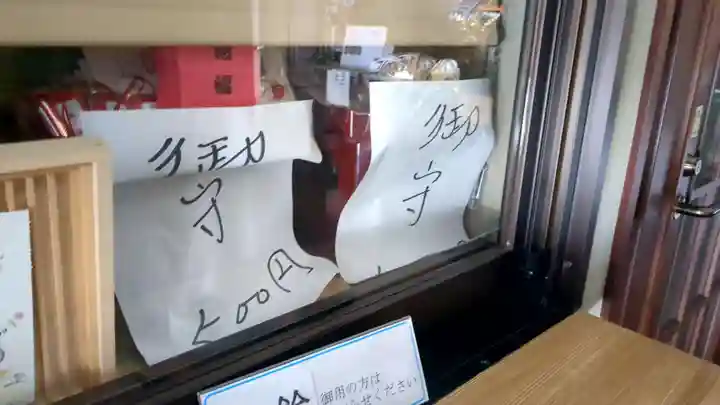 御守
500円
御守
鈴
御用の方は
せください